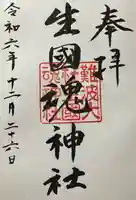 奉拝
生國魂神社
令和六年十二月二十六日